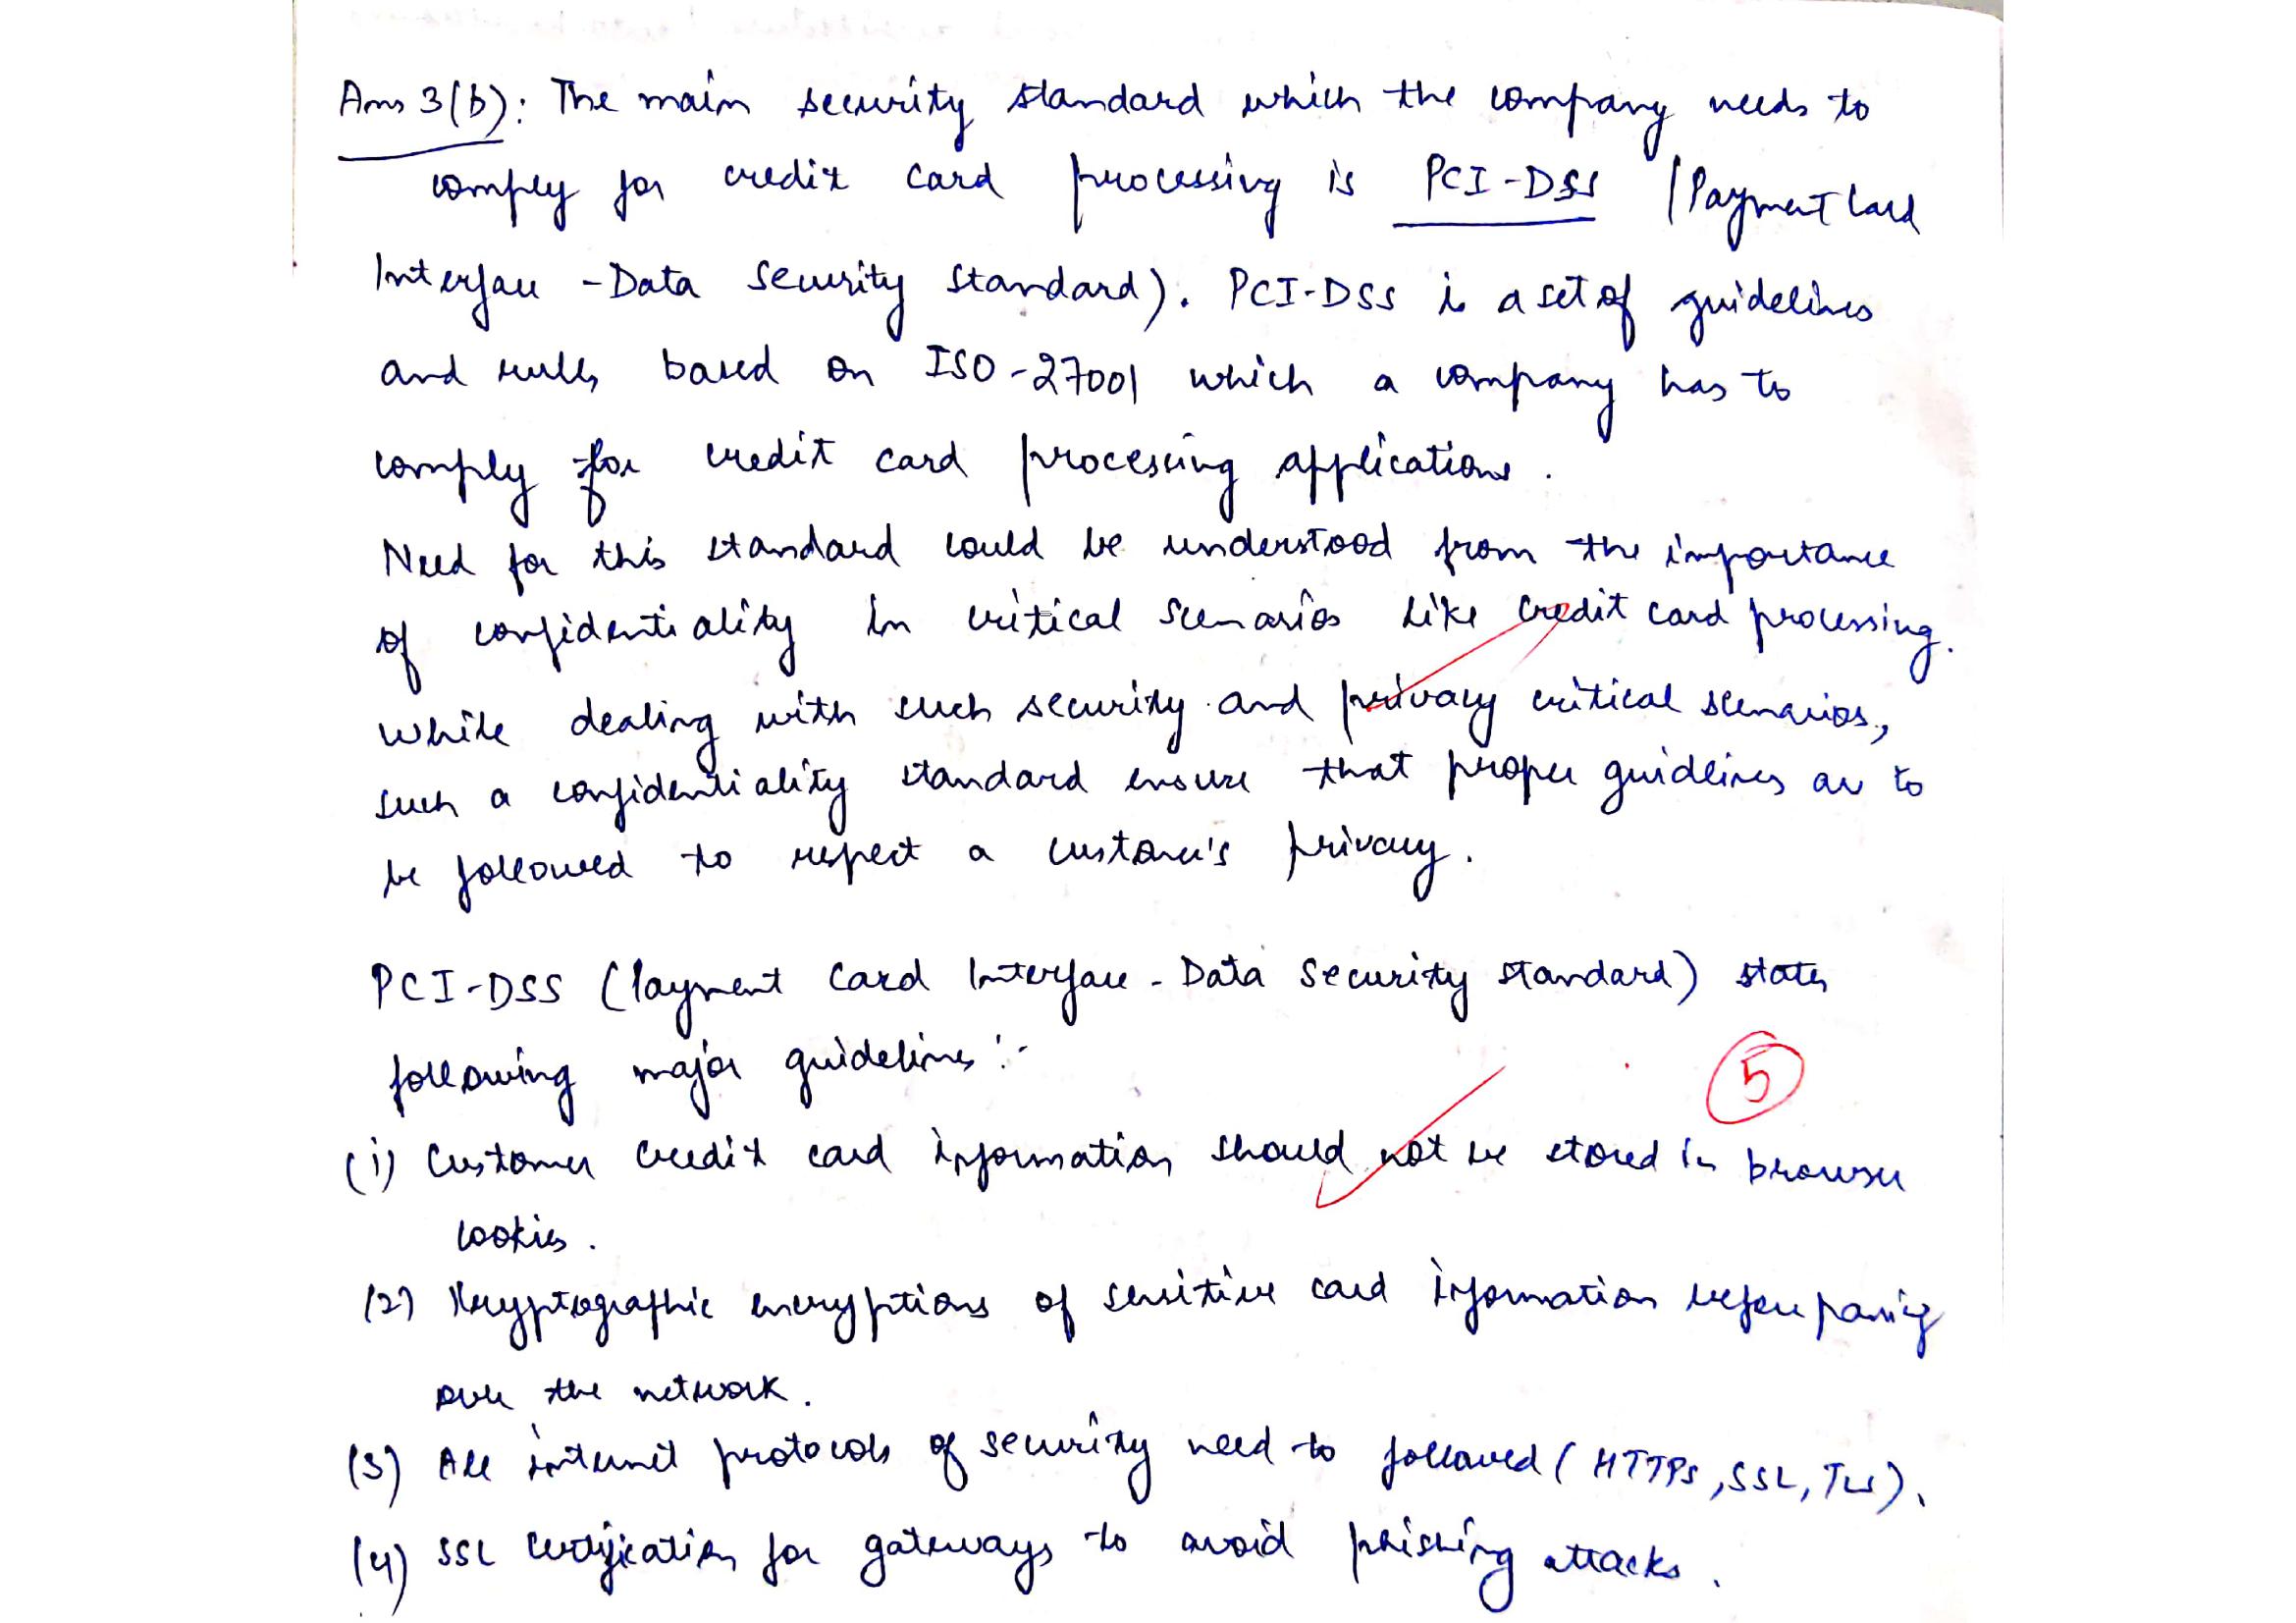 Ans 3(b): The main security standard which the company needs to
comply for credit card processing is PCI-DSS (Payment Card
Interface - Data Security Standard). PCI-DSS is a set of guidelines
and rules based on ISO-27001 which a company has to
comply for credit card processing applications.
Need for this standard could be understood from the importance
of confidentiality in critical scenarios like credit card processing.
While dealing with such security and privacy critical scenarios,
such a confidentiality standard ensure that proper guidlines are to
be followed to respect a customer's privacy.
PCI-DSS (Payment Card Interface - Data Security Standard) states
following major guidelines :-
5
(i) Customer credit card information should not be stored in browser
cookies.
(2) Kryptographic encryptions of sensitive card information before passing
over the network.
(3) All internet protocols of security need to followed (HTTPS, SSL, TLS).
(4) SSL Certification for gateways to avoid phishing attacks.